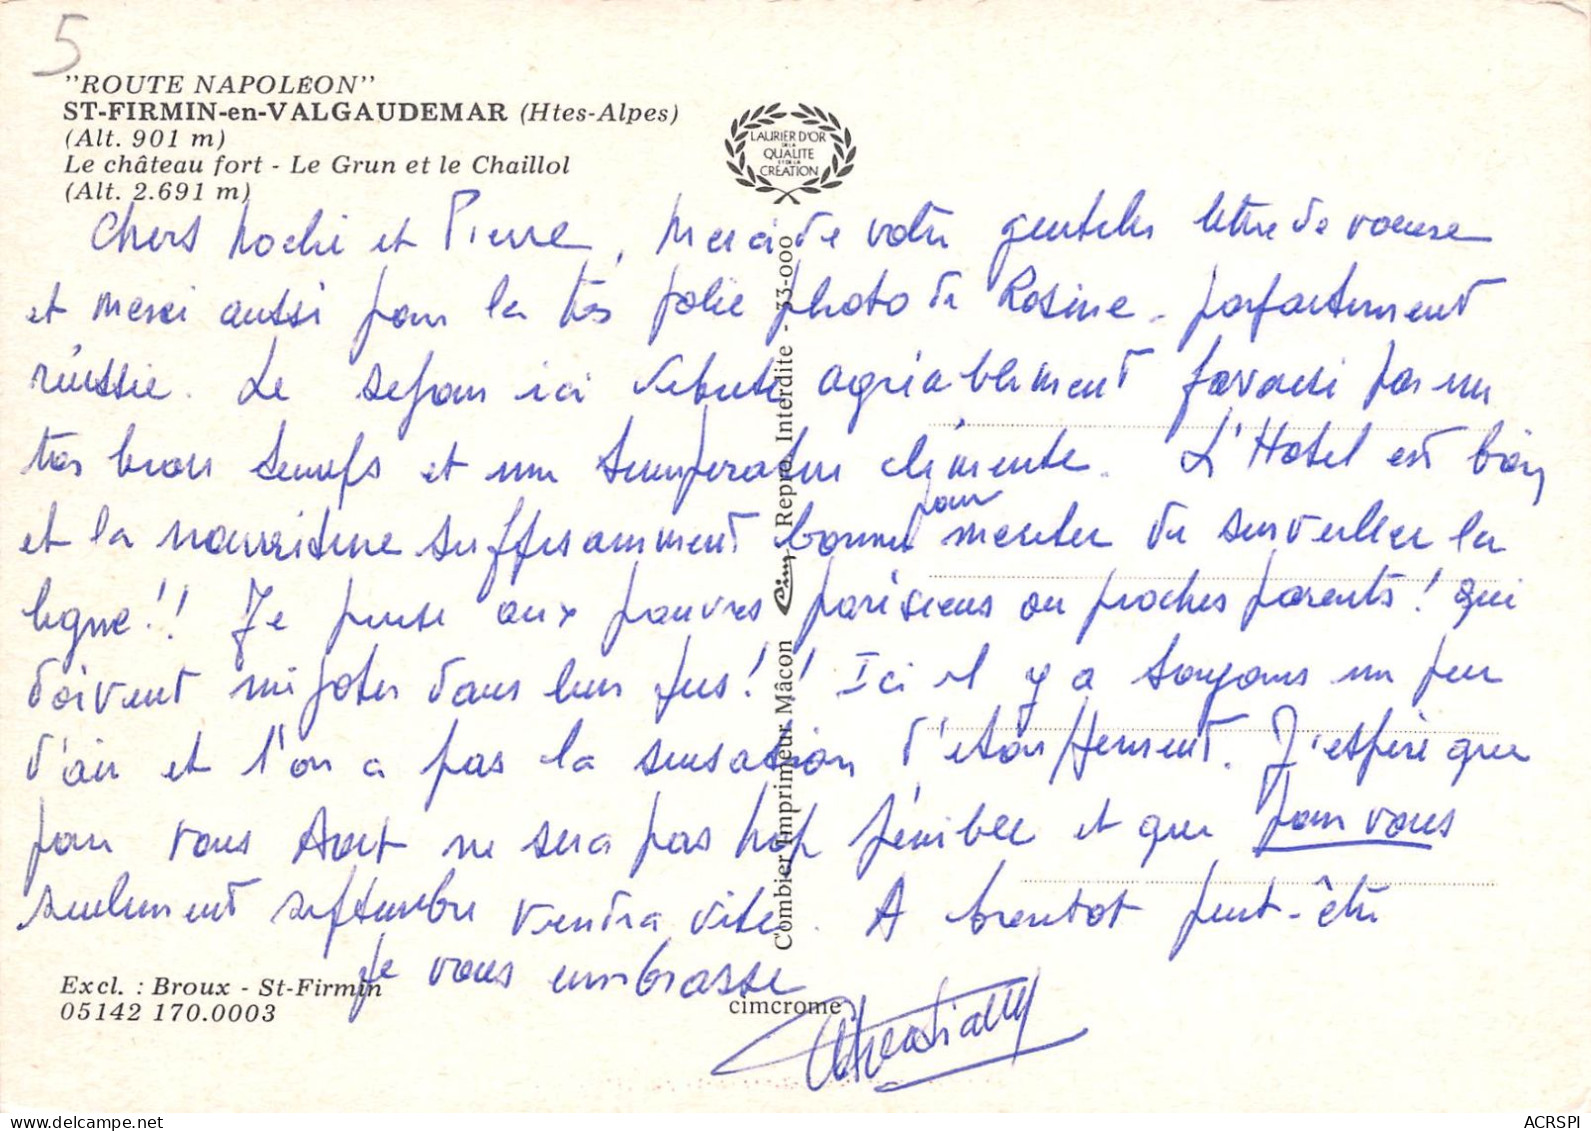 5
"ROUTE NAPOLÉON"
ST-FIRMIN-en-VALGAUDEMAR (Htes-Alpes)
(Alt. 901 m)
Le château fort - Le Grun et le Chaillol
(Alt. 2.691 m)
LAURIER D'OR
DE LA
QUALITE
ET DE LA
CRÉATION
Chers et Pierre, Merci de votre gentille lettre de
et merci aussi pour la très jolie photo de Rosine - parfaitement
réussie. Le séjour ici débute agréablement favorisé par un
très bon temps et une température clémente. L'Hotel est bien
et la nourriture suffisamment bonne pour mériter de surveiller la
ligne !! Je pense aux pauvres parisiens ou proches parents ! qui
doivent mijoter dans leur jus !! Ici il y a toujours un peu
d'air et l'on a pas la sensation d'etouffement. J'espère que
pour vous Aout ne sera pas trop pénible et que pour vous
seulement septembre viendra vite. A bientot peut-être
Je vous embrasse
Combier Imprimeur Mâcon Cim Repro. Interdite - 73-000
Excl. : Broux - St-Firmin
05142 170.0003
cimcrome
ACRSPI